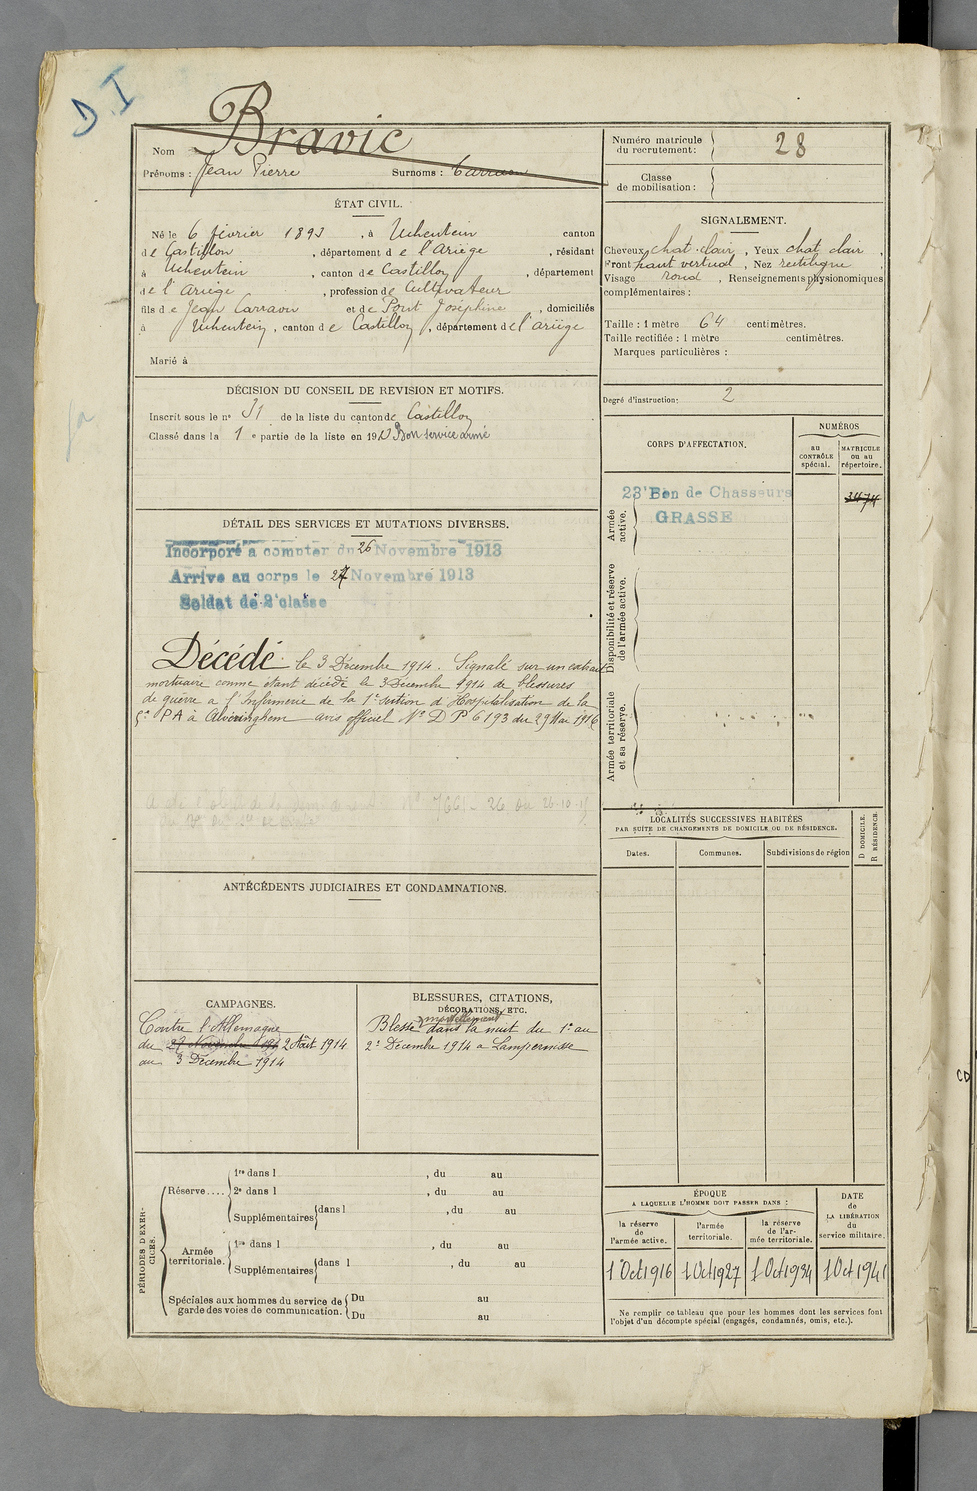 D.I
Nom Bravic
Prénoms : Jean Pierre Surnoms :
ÉTAT CIVIL.
Né le 6 février 1893 , à Uchentein canton
de Castillon , département de l'Ariège , résidant
à Uchentein , canton de Castillon , département
de l'Ariège , profession de Cultivateur
fils de Jean Carraou et de Pont Joséphine , domiciliés
à Uchentein , canton de Castillon , département de l'ariège
Marié à
DÉCISION DU CONSEIL DE REVISION ET MOTIFS.
Inscrit sous le n° 31 de la liste du canton de Castillon
Classé dans la 1 e partie de la liste en 1913 Bon service armé
DÉTAIL DES SERVICES ET MUTATIONS DIVERSES.
Incorporé à compter du 26 Novembre 1913
Arrivé au corps le 27 Novembre 1913
Soldat de 2e classe
Décédé le 3 Décembre 1914. Signalé sur un extrait
mortuaire comme étant décédé le 3 Décembre 1914 de blessures
de guerre à l'Infirmerie de la 1e section d'Hospitalisation de la
PA à Alveringhem avis officiel N° D P 6193 du 29 Mai 1916
ANTÉCÉDENTS JUDICIAIRES ET CONDAMNATIONS.
CAMPAGNES.
Contre l'Allemagne
du 27 Novembre 191 2 Août 1914
au 3 Décembre 1914
BLESSURES, CITATIONS,
DÉCORATIONS, ETC.
mortellement
Blessé dans la nuit du 1e au
2e Décembre 1914 a Lampernisse
PÉRIODES D'EXERCICES.
Réserve....
1re dans l , du au
2e dans l , du au
Supplémentaires dans l , du au
Armée territoriale.
1re dans l , du au
Supplémentaires dans l , du au
Spéciales aux hommes du service de
garde des voies de communication.
Du au
Du au
Numéro matricule
du recrutement : 28
Classe
de mobilisation :
SIGNALEMENT.
Cheveux chat. clair , Yeux chat clair ,
Front haut vertical , Nez rectiligne ,
Visage rond , Renseignements physionomiques
complémentaires :
Taille : 1 mètre 64 centimètres.
Taille rectifiée : 1 mètre centimètres.
Marques particulières :
Degré d'instruction : 2
CORPS D'AFFECTATION.
NUMÉROS
au
CONTRÔLE
spécial.
MATRICULE
ou au
répertoire.
Armée
active.
23e Bon de Chasseurs
GRASSE
3474
Disponibilité et réserve
de l'armée active.
Armée territoriale
et sa réserve.
LOCALITÉS SUCCESSIVES HABITÉES
PAR SUITE DE CHANGEMENTS DE DOMICILE OU DE RÉSIDENCE.
Dates.
Communes.
Subdivisions de région
D DOMICILE.
R RÉSIDENCE.
ÉPOQUE
A LAQUELLE L'HOMME DOIT PASSER DANS :
la réserve
de
l'armée active.
l'armée
territoriale.
la réserve
de l'ar-
mée territoriale.
DATE
de
LA LIBÉRATION
du
service militaire.
1 Oct 1916
1 Oct 1927
1 Oct 1934
1 Oct 1941
Ne remplir ce tableau que pour les hommes dont les services font
l'objet d'un décompte spécial (engagés, condamnés, omis, etc.).